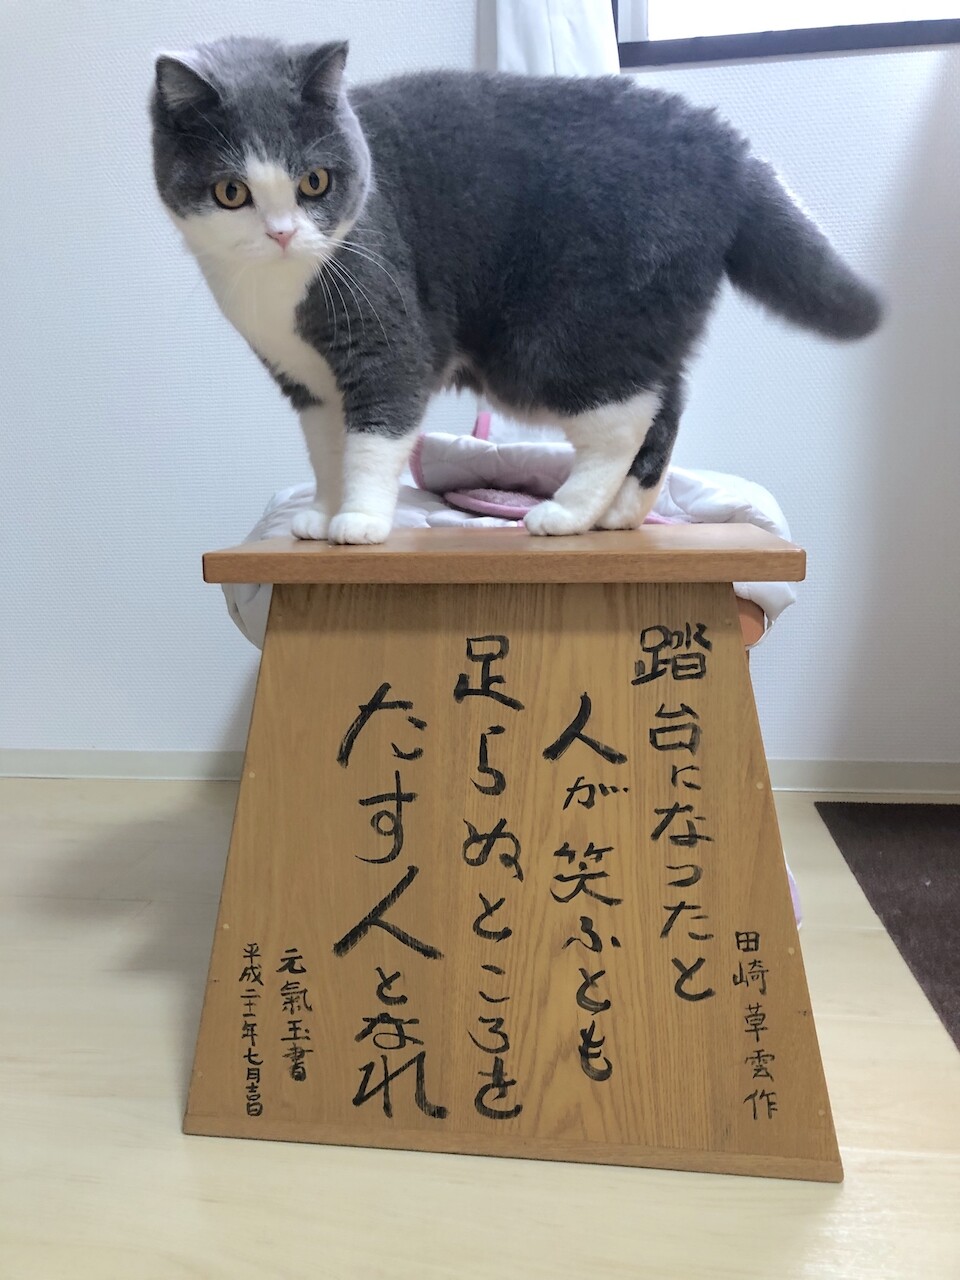 田崎草雲作
踏台になったと
人が笑ふとも
足らぬところを
たす人となれ
元氣玉書
平成二十一年七月吉日